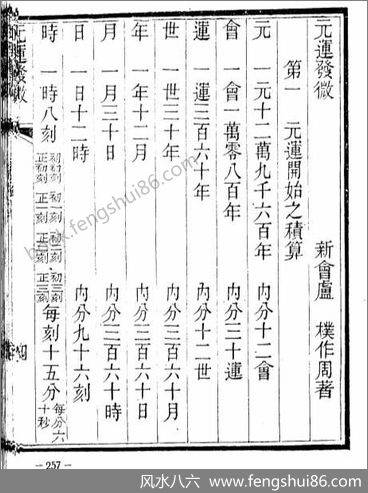 元運發微
新會盧 樸作周著
第一 元運開始之積算
元 一元十二萬九千六百年 內分十二會
會 一會一萬零八百年 內分三十運
運 一運三百六十年 內分十二世
世 一世三十年 內分三百六十月
年 一年十二月 內分三百六十日
月 一月三十日 內分三百六十時
日 一日十二時 內分九十六刻
時 一時八刻 初初刻 初一刻 初二刻 初三刻 正初刻 正一刻 正二刻 正三刻 每刻十五分 每分六十秒
元運發微
—257—
book.fengshui86.com
风水八六 www.fengshui86.com